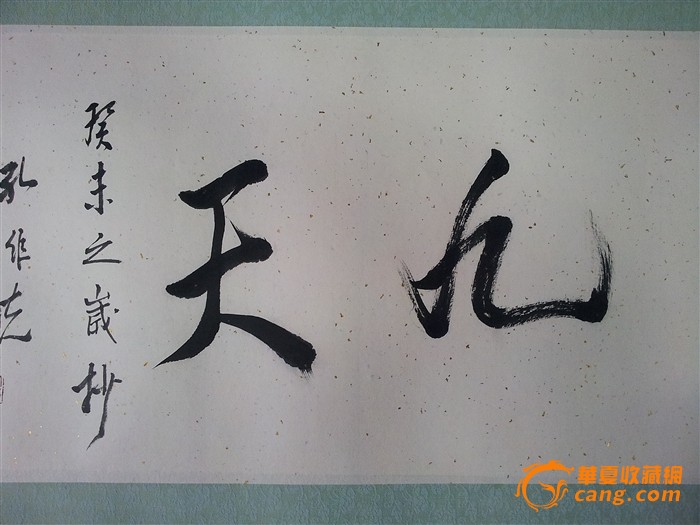 九天
癸未之歲杪
孔作克
華夏收藏網
cang.com